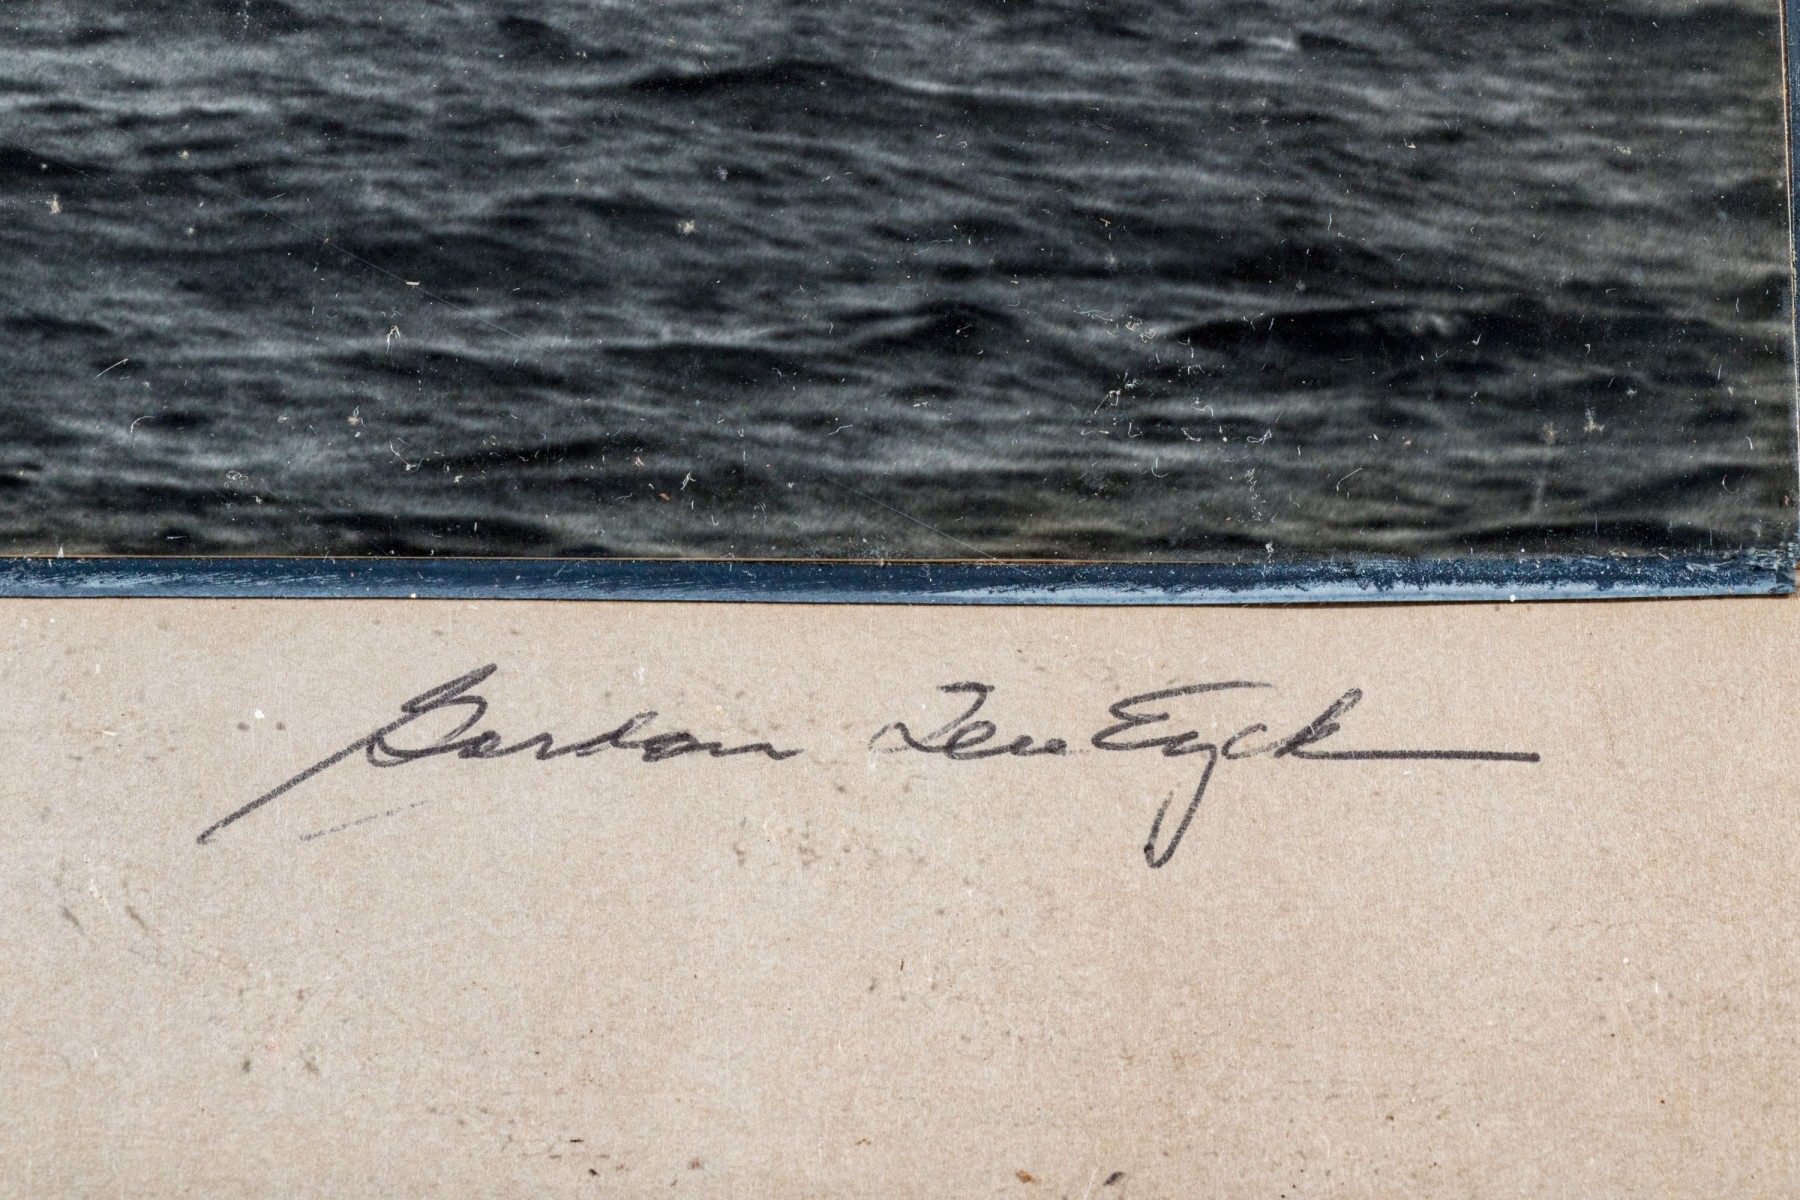 Gordon Ten Eyck